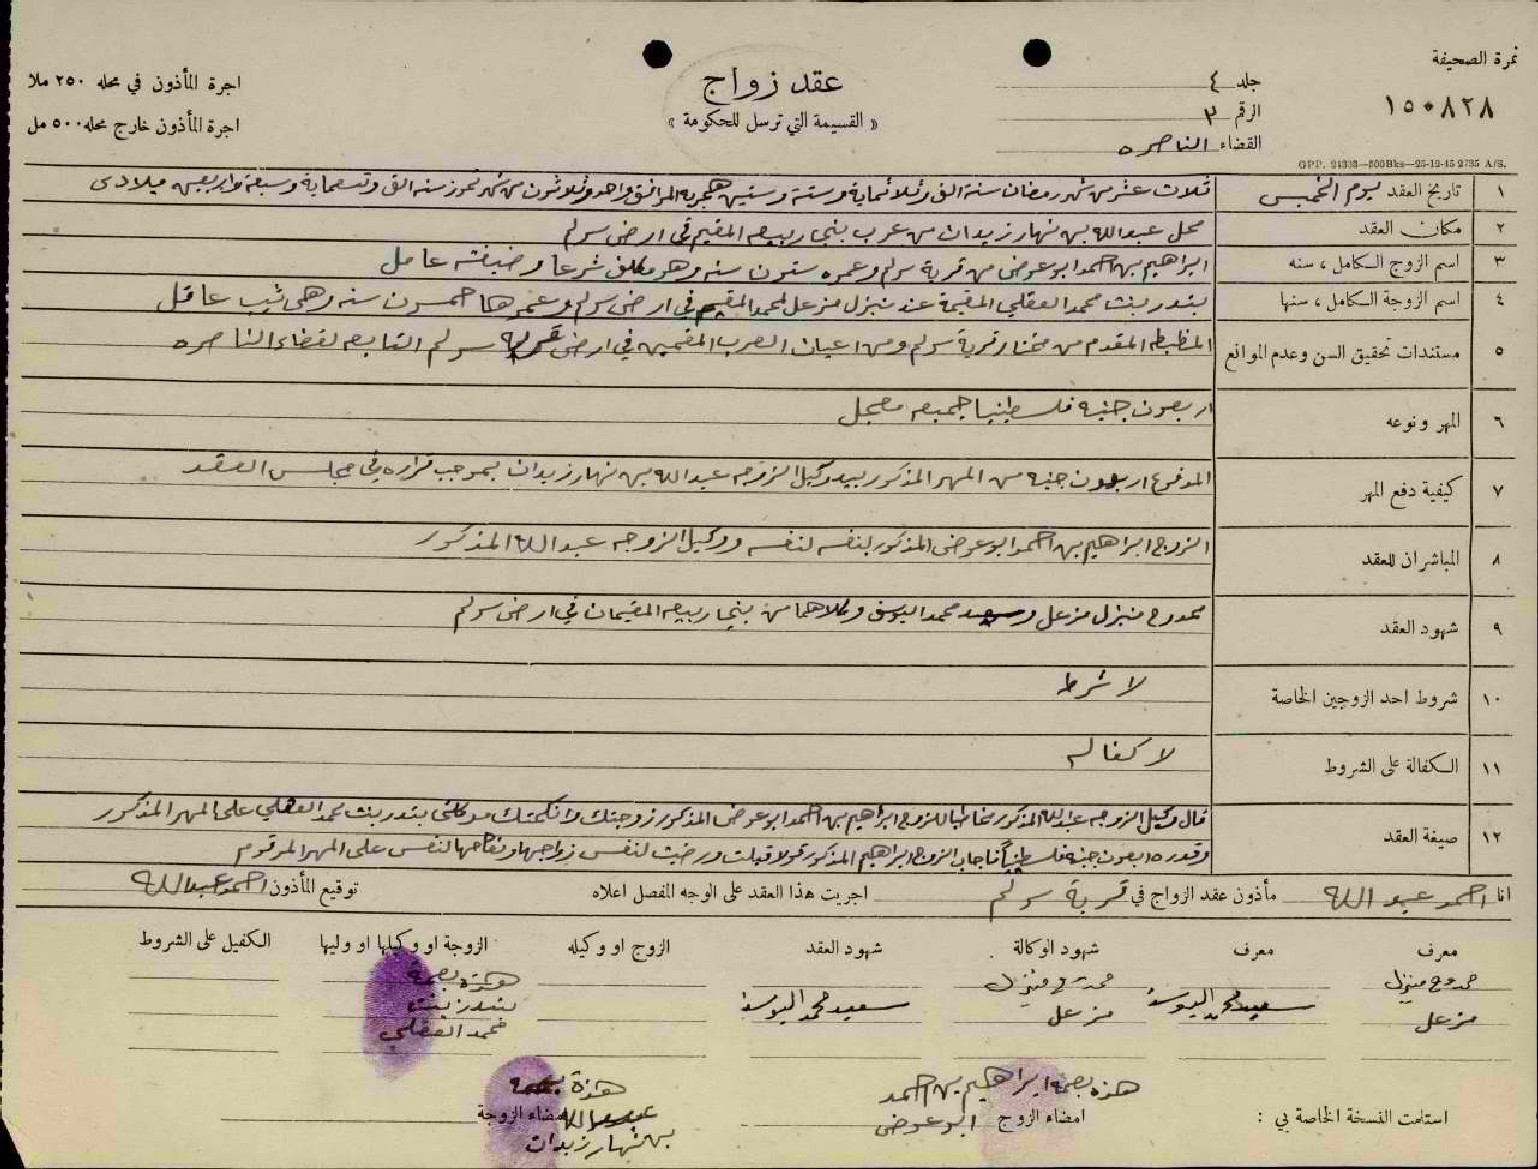 نمرة الصحيفة
١٥٠٨٢٨
جلد ٤
الرقم ٣
القضاء الناصره
عقد زواج
« القسيمة التي ترسل للحكومة »
اجرة المأذون في محله ٢٥٠ ملا
اجرة المأذون خارج محله ٥٠٠ مل
GPP. 24393—500Bks—25-12-45 2735 A/S.
١ تاريخ العقد يوم الخميس ثلاث عشر من شهر رمضان سنة الف وثلاثماية وستة وستين هجرية الموافق واحد وثلاثون من شهر تموز سنه الف وتسعماية وسبعة واربعين ميلادى
٢ مكان العقد محل عبدالله بن نهار زيدان من عرب بنيا ربيعه المقيم في ارض سولم
٣ اسم الزوج الكامل ، سنه ابراهيم بن احمد ابو عوض من قرية سولم وعمره ستون سنه وهو مكلف شرعا وضيفته عامل
٤ اسم الزوجة الكامل ، سنها بندر بنت محمد العقلي المقيمة عند منيزل مزعل لمحمد المقيم في ارض سولم وعمرها خمسون سنه وهي ثيب عاقل
٥ مستندات تحقيق السن وعدم الموانع المظبطه المقدم من مختار قرية سولم ومن اعيان العرب المقمين في ارض قرية سولم التابعه لقضاء الناصره
٦ المهر ونوعه اربعون جنيه فلسطينيا جميعه معجل
٧ كيفية دفع المهر المدفوع اربعون جنيه من المهر المذكور بيد وكيل الزوجه عبدالله بن نهار زيدان بموجب قراره في مجلس العقد
٨ المباشران للعقد الزوج ابراهيم بن احمد ابو عوض المذكور بنفسه لنفسه ووكيل الزوجه عبدالله المذكور
٩ شهود العقد ممدوح منيزل مزعل وسعيد محمد اليوسف وكلاهما من بنيا ربيعه المقيمان في ارض سولم
١٠ شروط احد الزوجين الخاصة لا شرط
١١ الكفالة على الشروط لا كفاله
١٢ صيغة العقد قال وكيل الزوجه عبدالله المذكور مخاطبا للزوج ابراهيم بن احمد ابو عوض المذكور زوجتك وانكحتك موكلتي بندر بنت محمد العقلي على المهر المذكور
وقدره اربعون جنيه فلسطينياً فاجاب الزوج ابراهيم المذكور قولا قبلت ورضيت لنفسي زواجها ونكاحها لنفسي على المهر المرقوم
انا احمد عبد الله مأذون عقد الزواج في قرية سولم اجريت هذا العقد على الوجه المفصل اعلاه توقيع المأذون احمد عبدالله
معرف معرف شهود الوكالة شهود العقد الزوج او وكيله الزوجة او وكيلها او وليها الكفيل على الشروط
ممدوح منيزل سعيد محمد اليوسف ممدوح منيزل سعيد محمد اليوسف هذة بصمة
مزعل مزعل بندر بنت
محمد العقلي
هذه بصمة ابراهيم بن احمد هذة بصمة
استلمت النسخة الخاصة بي : امضاء الزوج ابو عوض امضاء الزوجة عبدالله
بن نهار زيدان